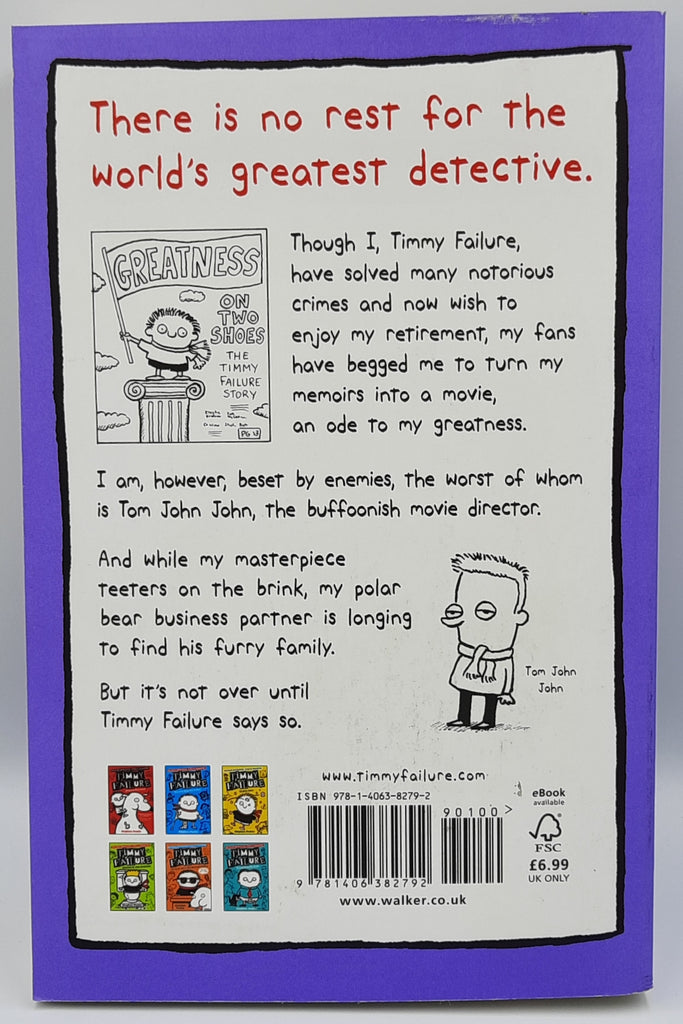 There is no rest for the
world's greatest detective.
GREATNESS
ON
TWO
SHOES
THE
TIMMY
FAILURE
STORY
PG 13
Though I, Timmy Failure,
have solved many notorious
crimes and now wish to
enjoy my retirement, my fans
have begged me to turn my
memoirs into a movie,
an ode to my greatness.
I am, however, beset by enemies, the worst of whom
is Tom John John, the buffoonish movie director.
And while my masterpiece
teeters on the brink, my polar
bear business partner is longing
to find his furry family.
But it's not over until
Timmy Failure says so.
Tom John
John
TIMMY
FAILURE
TIMMY
FAILURE
TIMMY
FAILURE
TIMMY
FAILURE
TIMMY
FAILURE
TIMMY
FAILURE
www.timmyfailure.com
ISBN 978-1-4063-8279-2
90100>
9 781406 382792
www.walker.co.uk
eBook
available
FSC
£6.99
UK ONLY